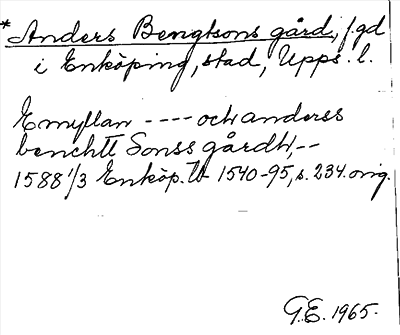 *Anders Bengtsons gård, f.gd
i Enköping, stad, Upps. l.
Emyllan ---- och anderss
benchtt Sonss gårdh,--
1588 1/3 Enköp. Tb 1540-95, s. 234. orig.
G.E. 1965.